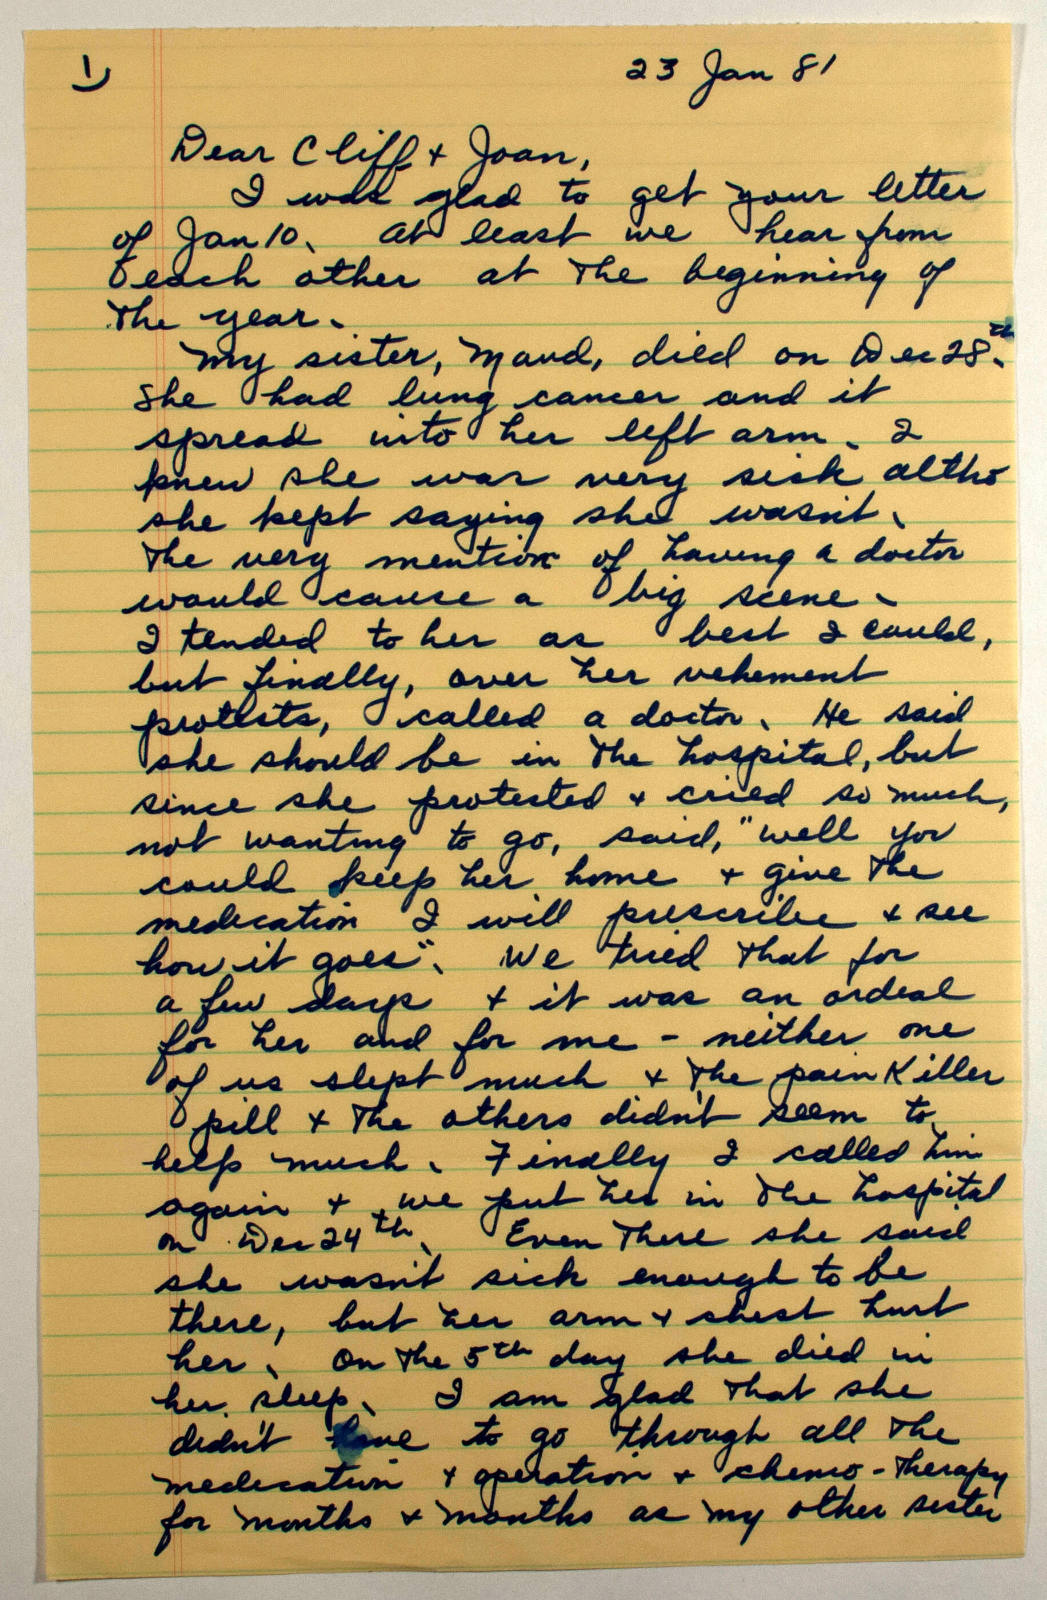 1)
23 Jan 81
Dear Cliff + Joan,
I was glad to get your letter
of Jan 10. At least we hear from
each other at the beginning of
the year.
My sister, Maud, died on Dec 28th.
She had lung cancer and it
spread into her left arm. I
knew she was very sick altho
she kept saying she wasn't.
The very mention of having a doctor
would cause a big scene.
I tended to her as best I could,
but finally, over her vehement
protests, called a doctor. He said
she should be in the hospital, but
since she protested + cried so much,
not wanting to go, said, "well you
could keep her home + give the
medication I will prescribe + see
how it goes". We tried that for
a few days + it was an ordeal
for her and for me - neither one
of us slept much + the pain Killer
pill + the others didn't seem to
help much. Finally I called him
again + we put her in the hospital
on Dec 24th. Even there she said
she wasn't sick enough to be
there, but her arm + chest hurt
her. On the 5th day she died in
her sleep. I am glad that she
didn't have to go through all the
medication + operation + chemo-therapy
for months + months as my other sister